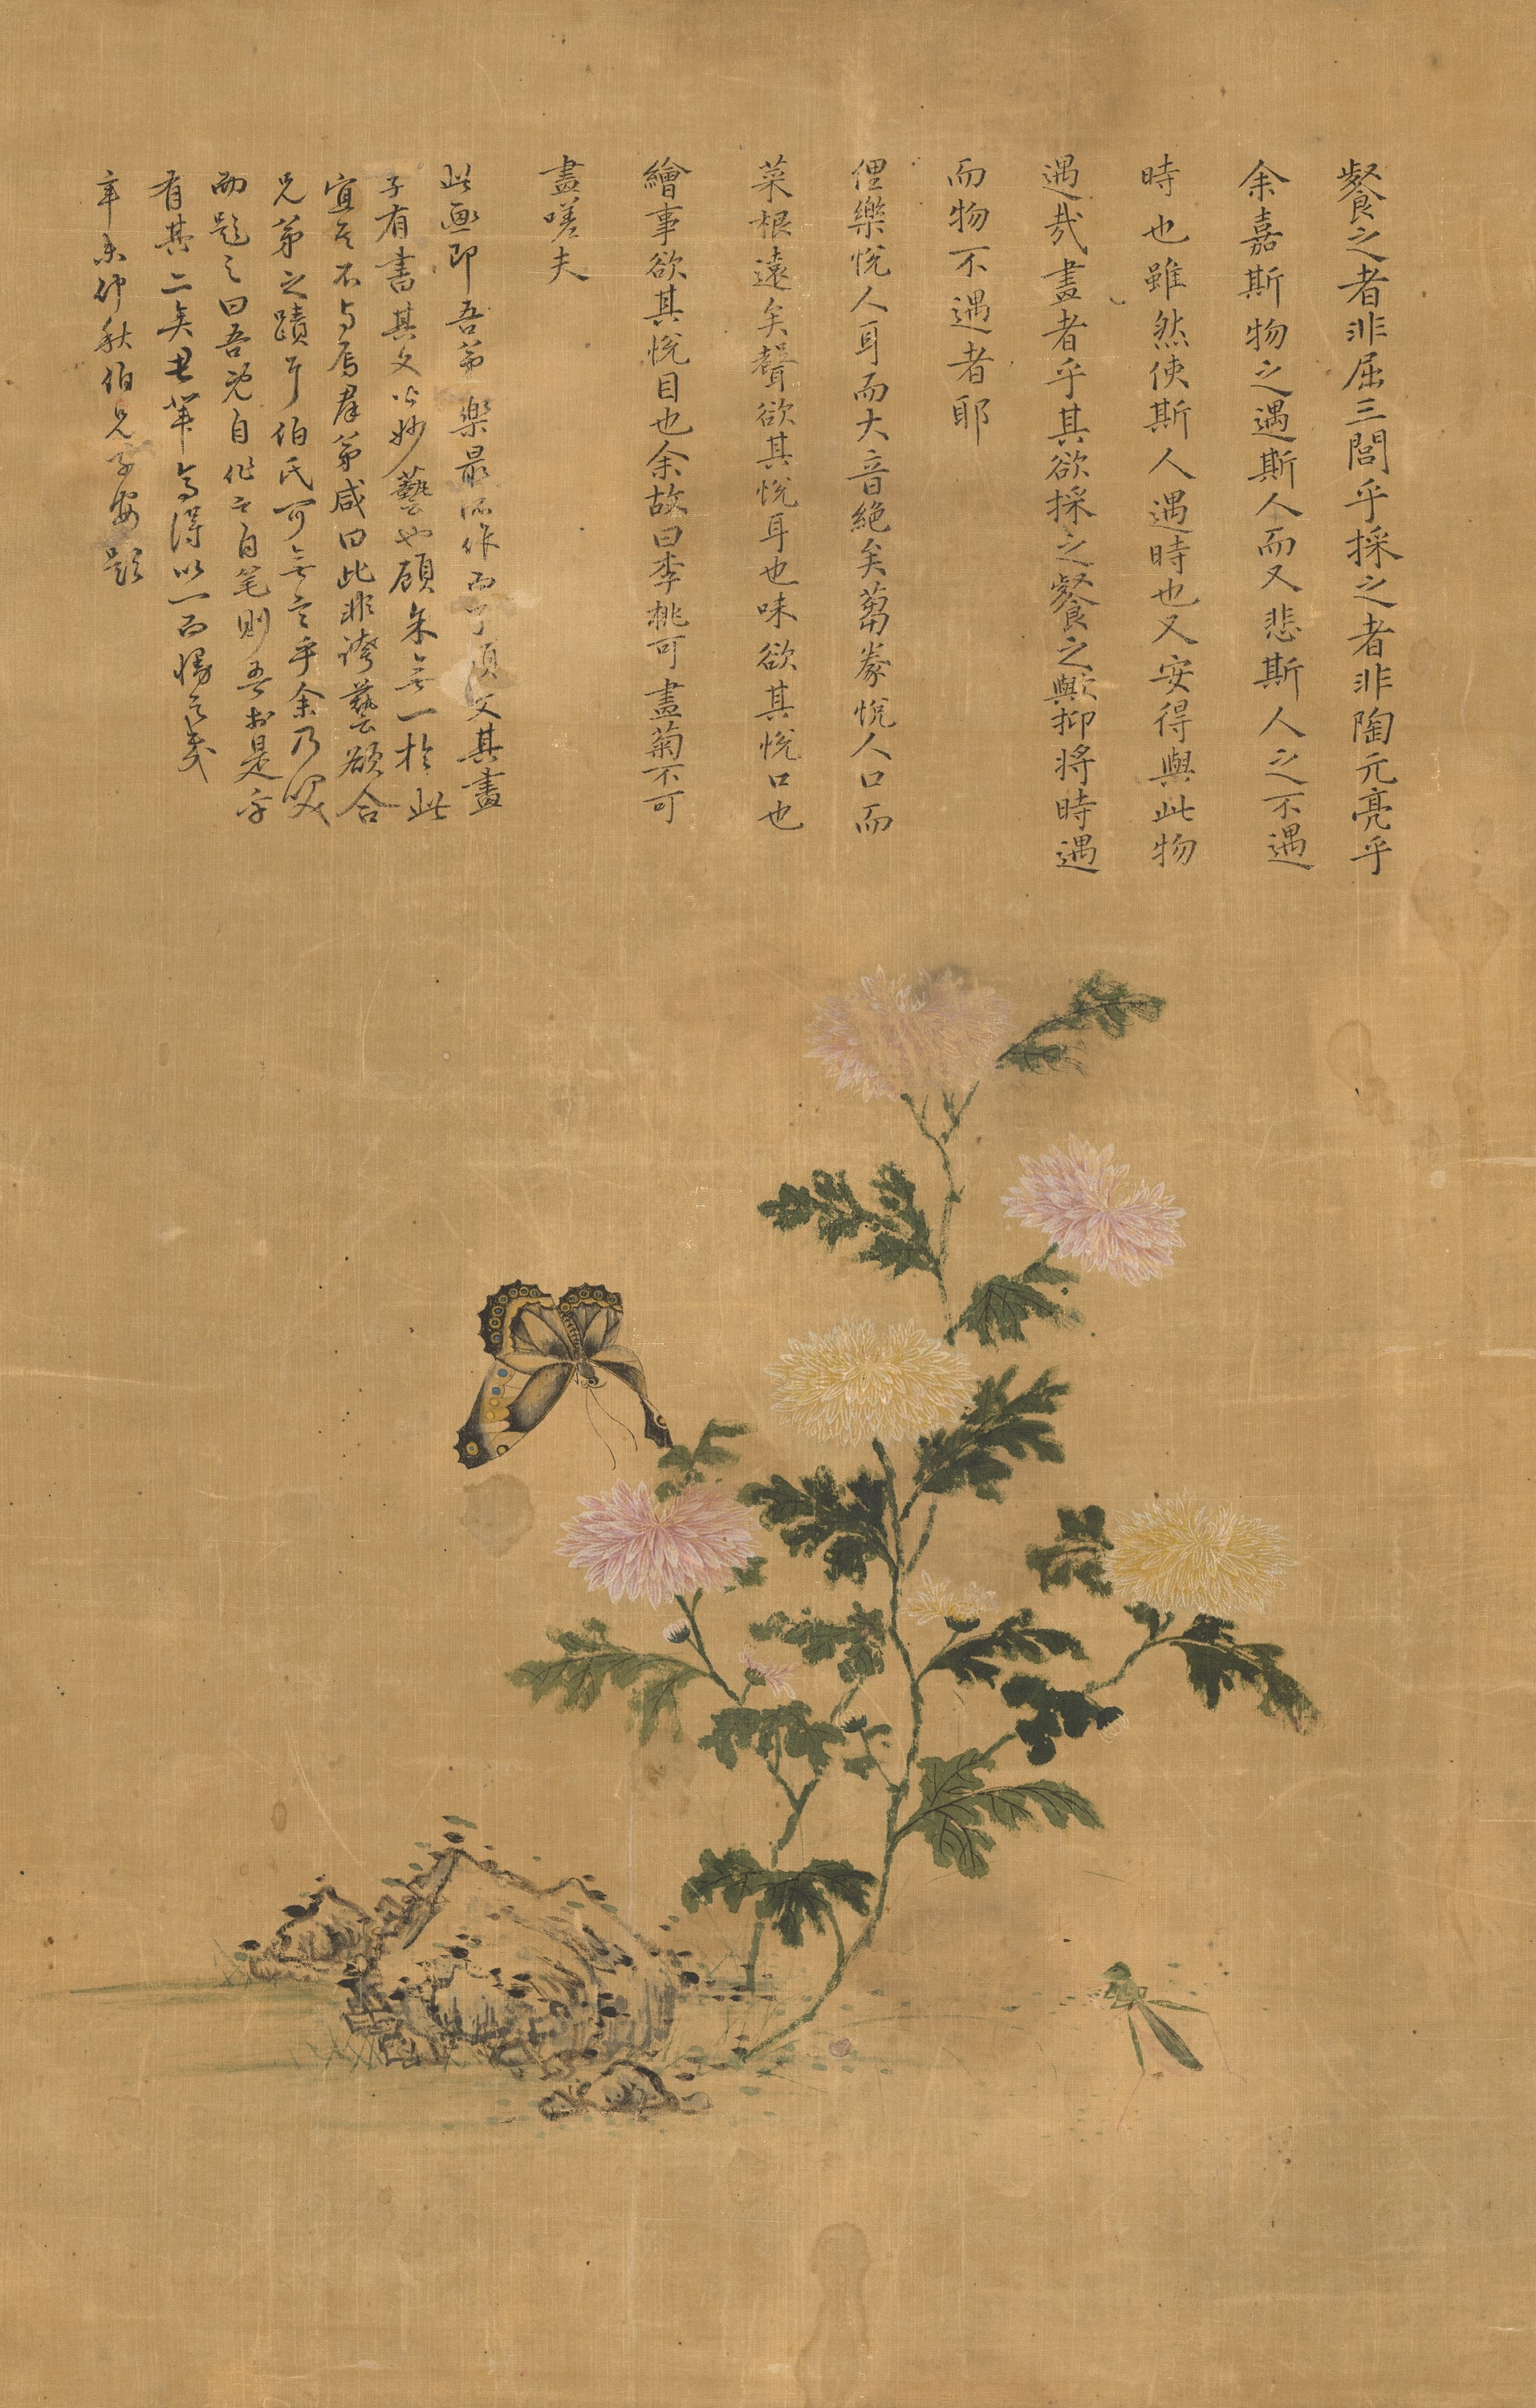 餐之者非屈三閭乎採之者非陶元亮乎
余嘉斯物之遇斯人而又悲斯人之不遇
時也雖然使斯人遇時也又安得與此物
遇哉畫者乎其欲採之餐之歟抑將時遇
而物不遇者耶
俚樂悅人耳而大音絶矣蒭豢悅人口而
菜根遠矣聲欲其悅耳也味欲其悅口也
繪事欲其悅目也余故曰李桃可畫菊不可
畫嗟夫
此画即吾弟樂最所作而 文其畫
子有書其文以妙藝也顧朱無一於此
宜其不与焉群弟咸曰此非誇藝欲合
兄弟之蹟耳伯氏可無言乎余乃笑
而題之曰吾兄自作之自笔則吾於是乎
有其二矣 得以一而慢之哉
辛未仲秋伯兄子安題